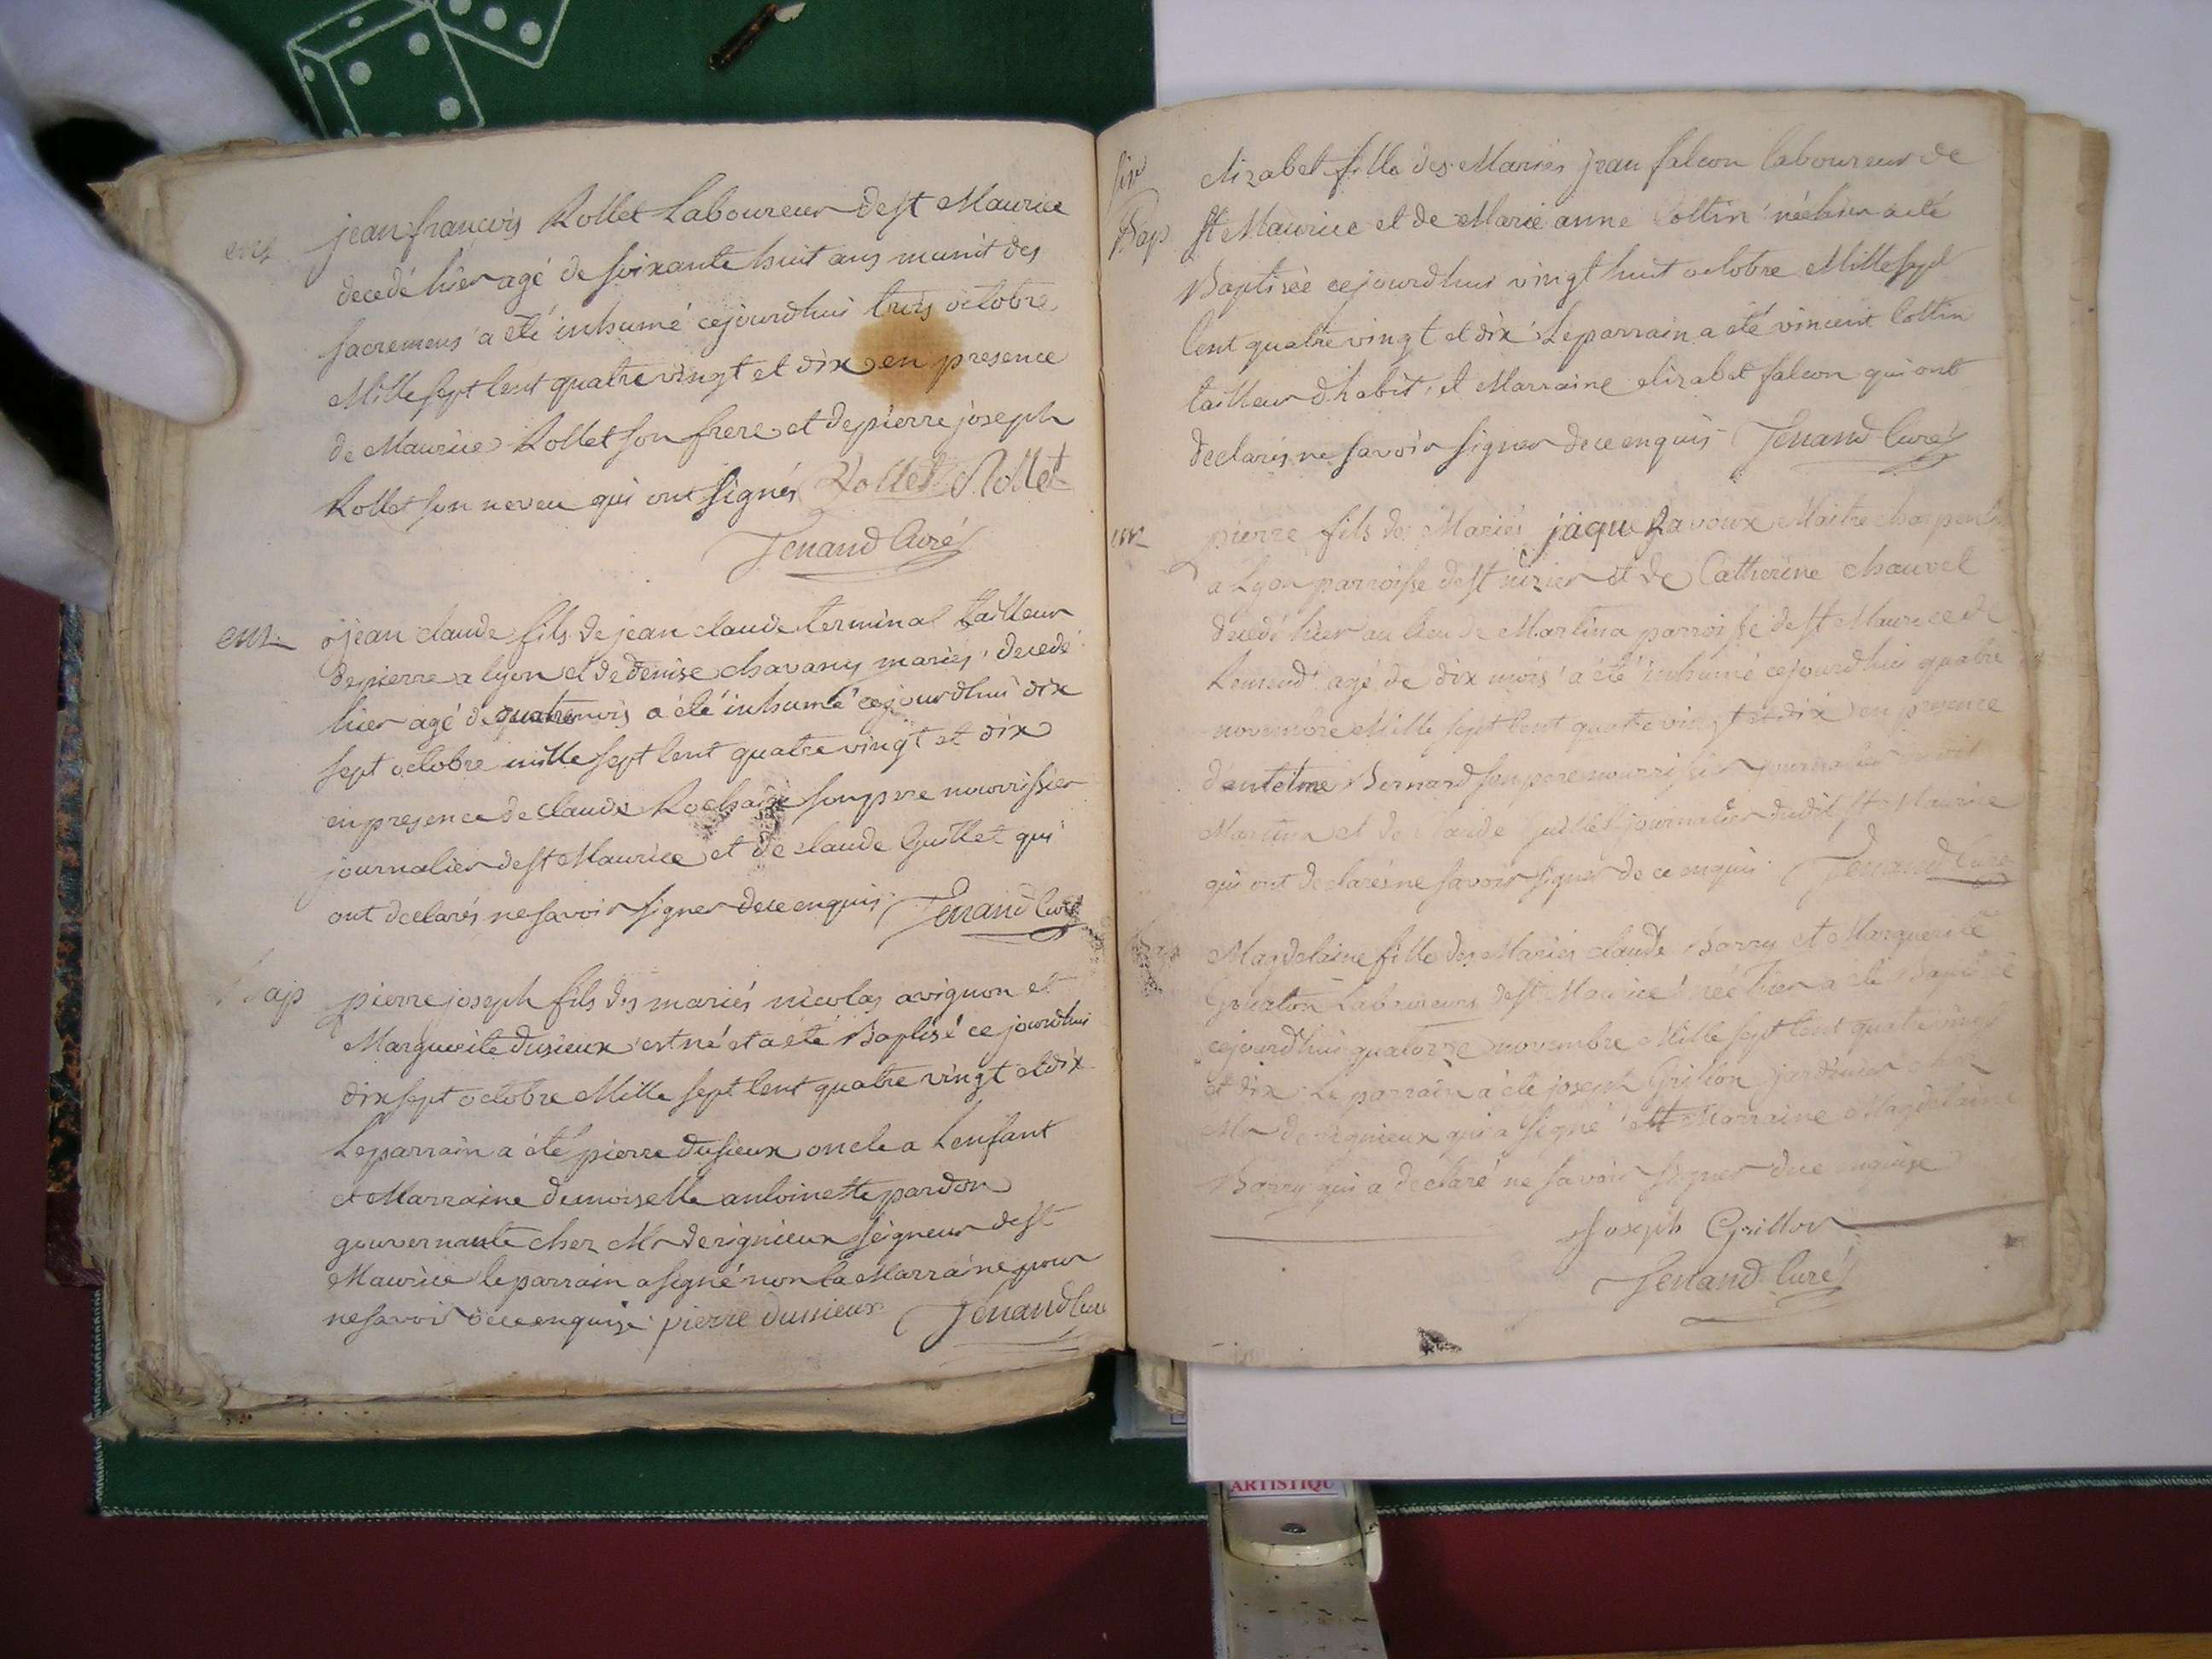 ent
jean françois Rollet Laboureur de st Maurice
decedé hier agé de soixante huit ans munit des
sacremens a été inhumé cejourdhui trois octobre
Mille sept Cent quatre vingt et dix en presence
de Maurice Rollet son frere et de pierre joseph
Rollet son neveu qui ont signés Rollet Rollet
Jenand Curé
ent
jean claude fils de jean claude terminal tailleur
de pierre a lyon et de denise chavany mariés, decedé
hier agé de quatre mois a été inhumé cejourdhui dix
sept octobre mille sept Cent quatre vingt et dix
en presence de claude son pere nourrissier
journalier de st Maurice et de claude Guillet qui
ont declarés ne savoir signer de ce enquis Jenand Curé
Bap
pierre joseph fils des mariés nicolas avignon et
Marguerite dusieux est né et a été Baptisé ce jourdhui
dix sept octobre Mille sept Cent quatre vingt et dix
Le parrain a été pierre dusieux oncle a Lenfant
et Marraine demoiselle antoinette pardon
gouvernante chez Mr derignieux seigneur de st
Maurice le parrain a signé non la Marraine pour
ne savoir de ce enquise pierre dusieux Jenand Curé
Bap
elizabet fille des Mariés jean falcon laboureur de
st Maurice et de Marie anne Cottin née hier a été
Baptisée cejourdhui vingt huit octobre Mille sept
Cent quatre vingt et dix Le parrain a été vincent Cottin
tailleur dhabit, et Marraine elizabet falcon qui ont
declarés ne savoir signer de ce enquis Jenand Curé
ent
pierre fils des Mariés jaque Ravoux Maitre charpentier
a Lyon parroisse de st nizier et de Catherine chauvet
decedé hier au lieu de Martina parroisse de st Maurice de
Remend agé de dix mois a été inhumé cejourdhui quatre
novembre Mille sept Cent quatre vingt et dix en presence
d'antelme Bernard son pere nourrissier journalier
Martina et de Claude Guillet journalier dudit st Maurice
qui ont declarés ne savoir signer de ce enquis Jenand Curé
Magdelaine fille des Mariés claude Barry et Marguerite
Laboureurs de st Maurice née hier a été Baptisée
cejourdhui quatorze novembre Mille sept Cent quatre vingt
et dix Le parrain a été joseph Grillon jardinier chez
Mr derignieux qui a signé et Marraine Magdelaine
Barry qui a declaré ne savoir signer de ce enquise
Joseph Grillon
Jenand Curé
ARTISTIQU